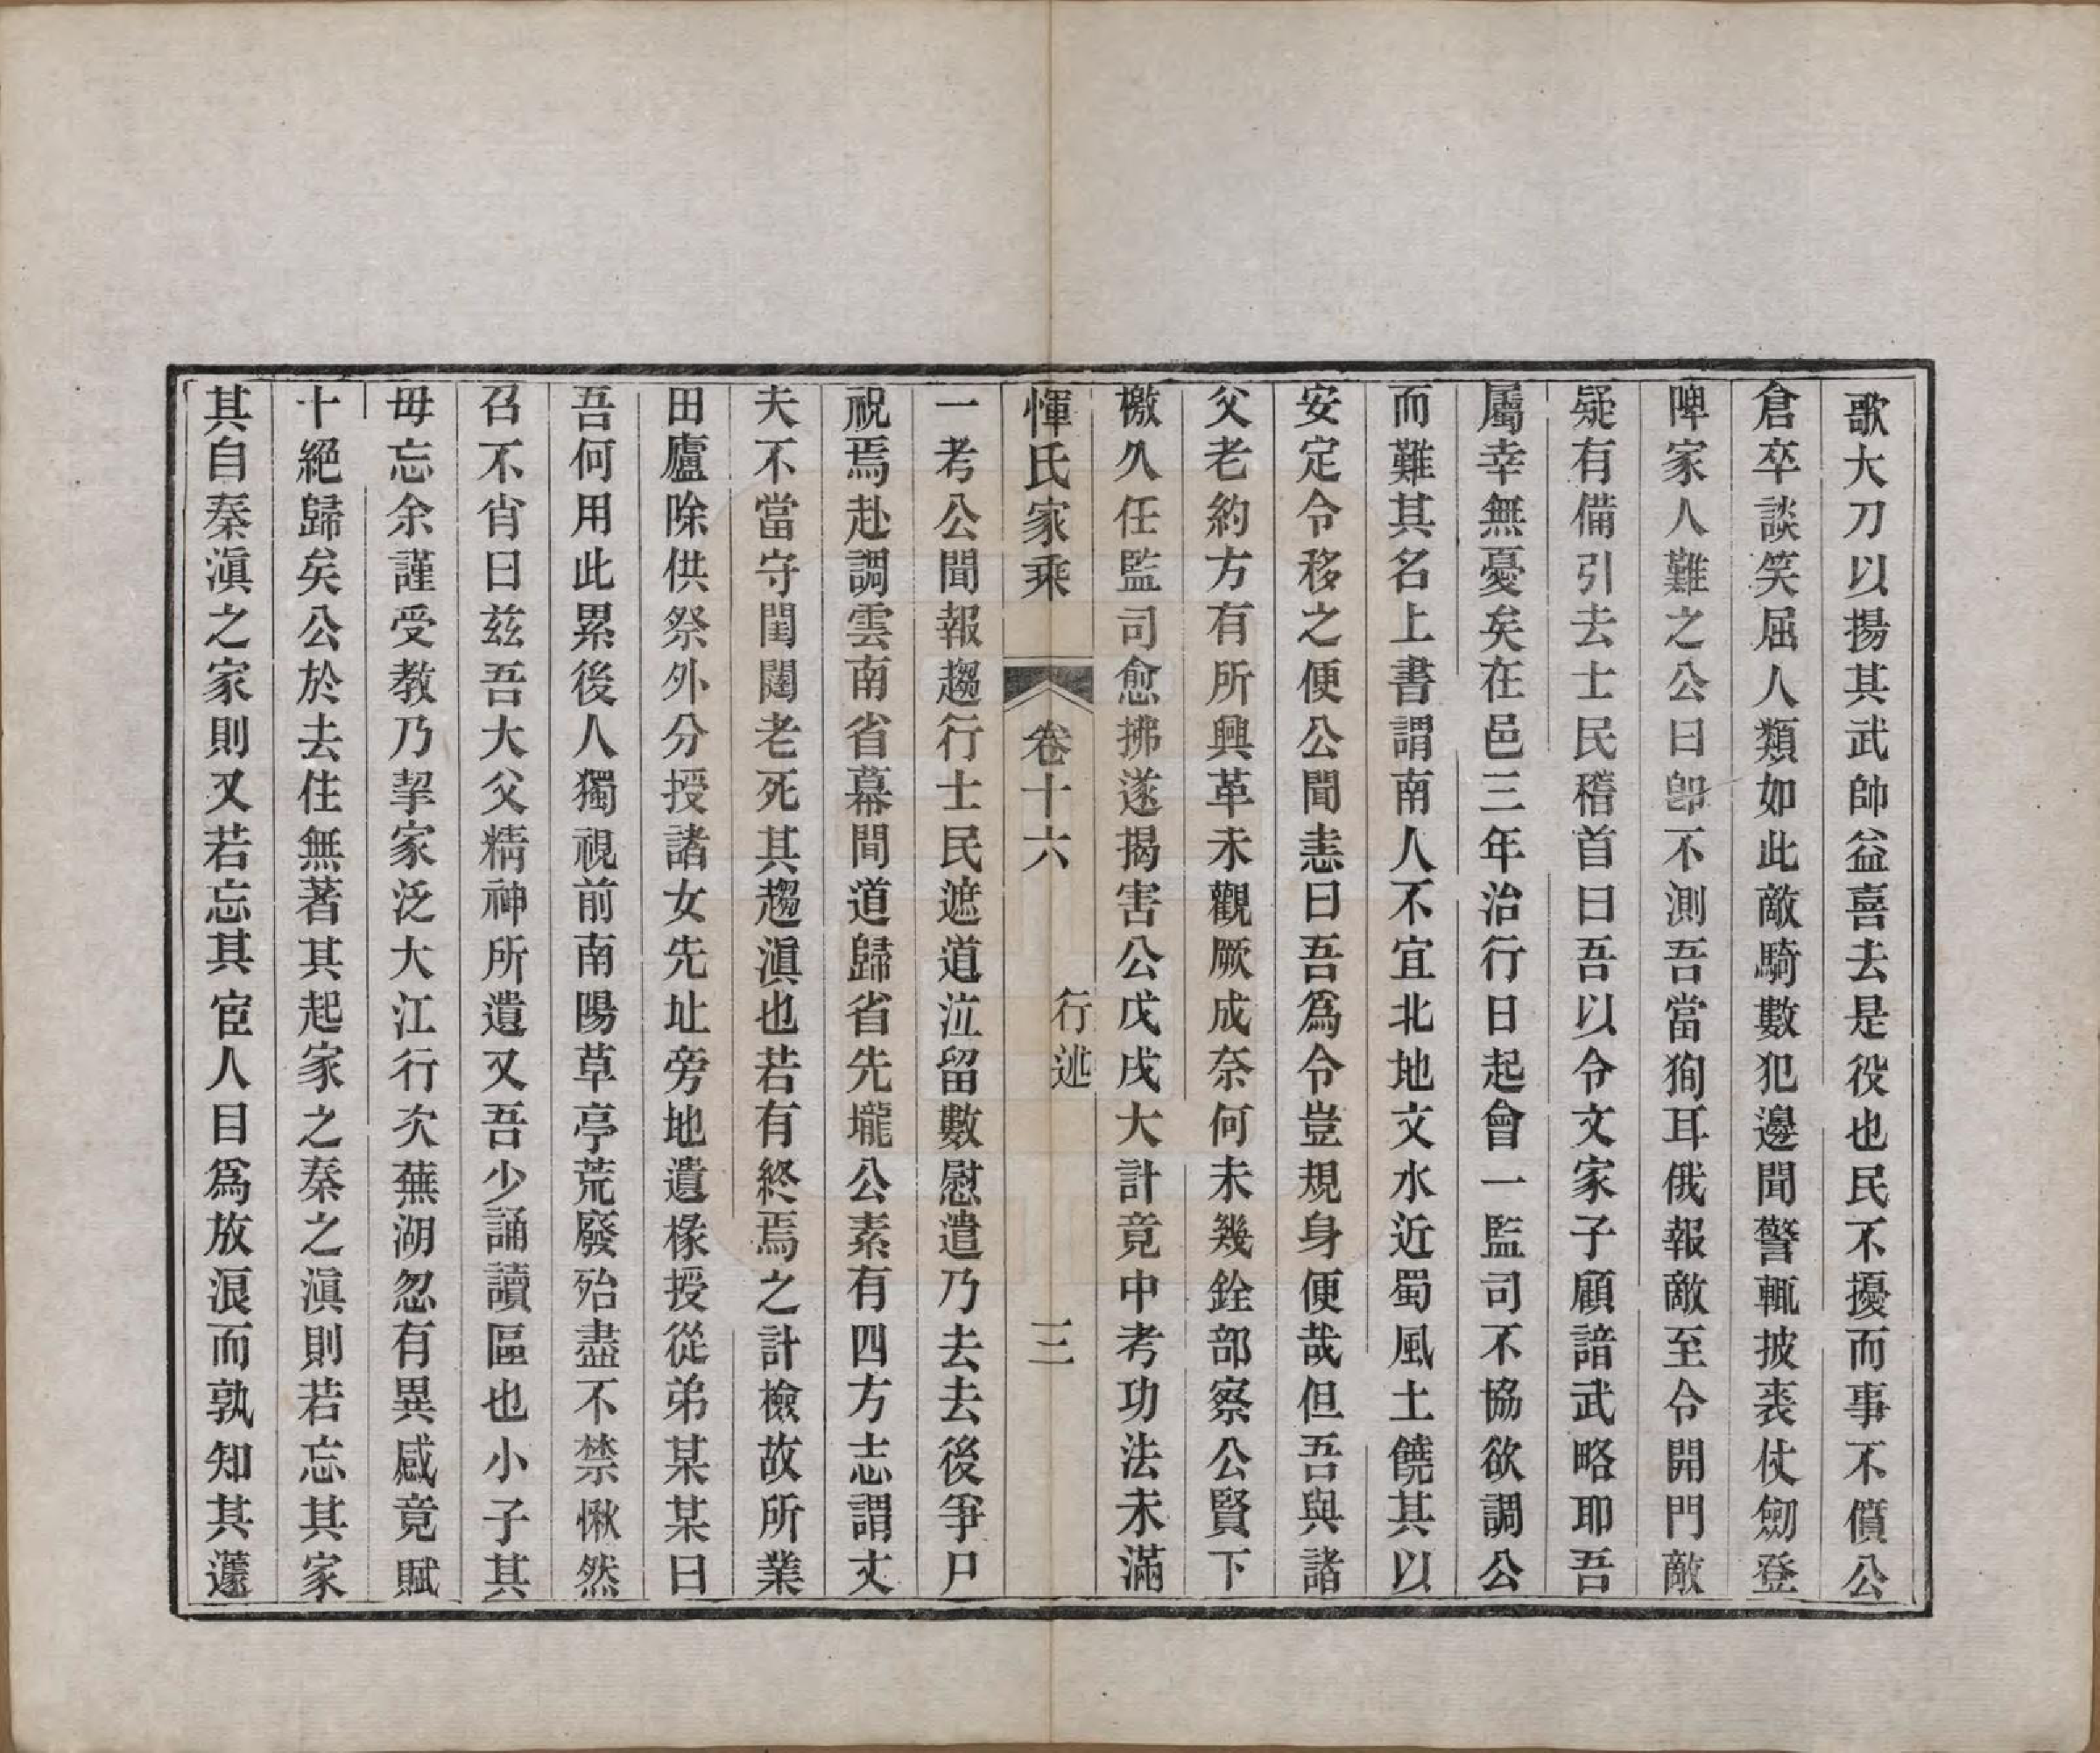 歌大刀以揚其武帥益喜去是役也民不擾而事不僨公
倉卒談笑屈人類如此敵騎數犯邊聞警輒披裘仗劒登
陴家人難之公曰卽不測吾當狥耳俄報敵至令開門敵
疑有備引去士民稽首曰吾以令文家子顧諳武略耶吾
屬幸無憂矣在邑三年治行日起會一監司不協欲調公
而難其名上書謂南人不宜北地文水近蜀風土饒其以
安定令移之便公聞恚曰吾爲令豈規身便哉但吾與諸
父老約方有所興革未觀厥成奈何未幾銓部察公賢下
檄久任監司愈拂遂揭害公戊戌大計竟中考功法未滿
惲氏家乘 卷十六 行述 三
一考公聞報趨行士民遮道泣留數慰遣乃去去後爭尸
祝焉赴調雲南省幕間道歸省先壠公素有四方志謂丈
夫不當守閨闥老死其趨滇也若有終焉之計檢故所業
田廬除供祭外分授諸女先址旁地遺椽授從弟某某曰
吾何用此累後人獨視前南陽草亭荒廢殆盡不禁愀然
召不肖曰兹吾大父精神所遺又吾少誦讀區也小子其
毋忘余謹受教乃挈家泛大江行次蕪湖忽有異感竟賦
十絕歸矣公於去住無著其起家之秦之滇則若忘其家
其自秦滇之家則又若忘其宦人目爲放浪而孰知其蘧